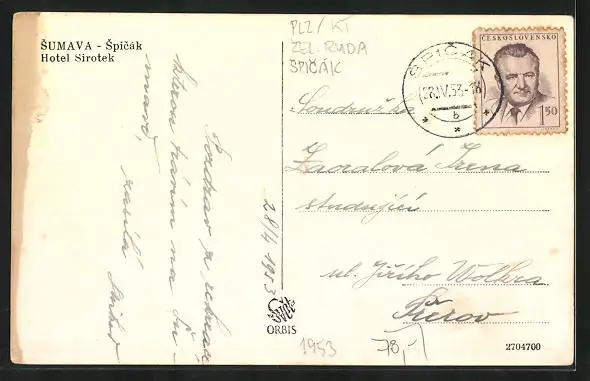 ŠUMAVA - Špičák
Hotel Sirotek
PLZ / KT
ŽEL. RUDA
ŠPIČÁK
ŠPIČÁK
28.IV.53-16
b
ČESKOSLOVENSKO
1.50
Soudružka
Zavralová Irena
studující
ul. Jiřího Wolkra
Přerov
Pozdrav z
na Šu-
mavě,
28/4 1953
ORBIS
1953
78,-
2704700